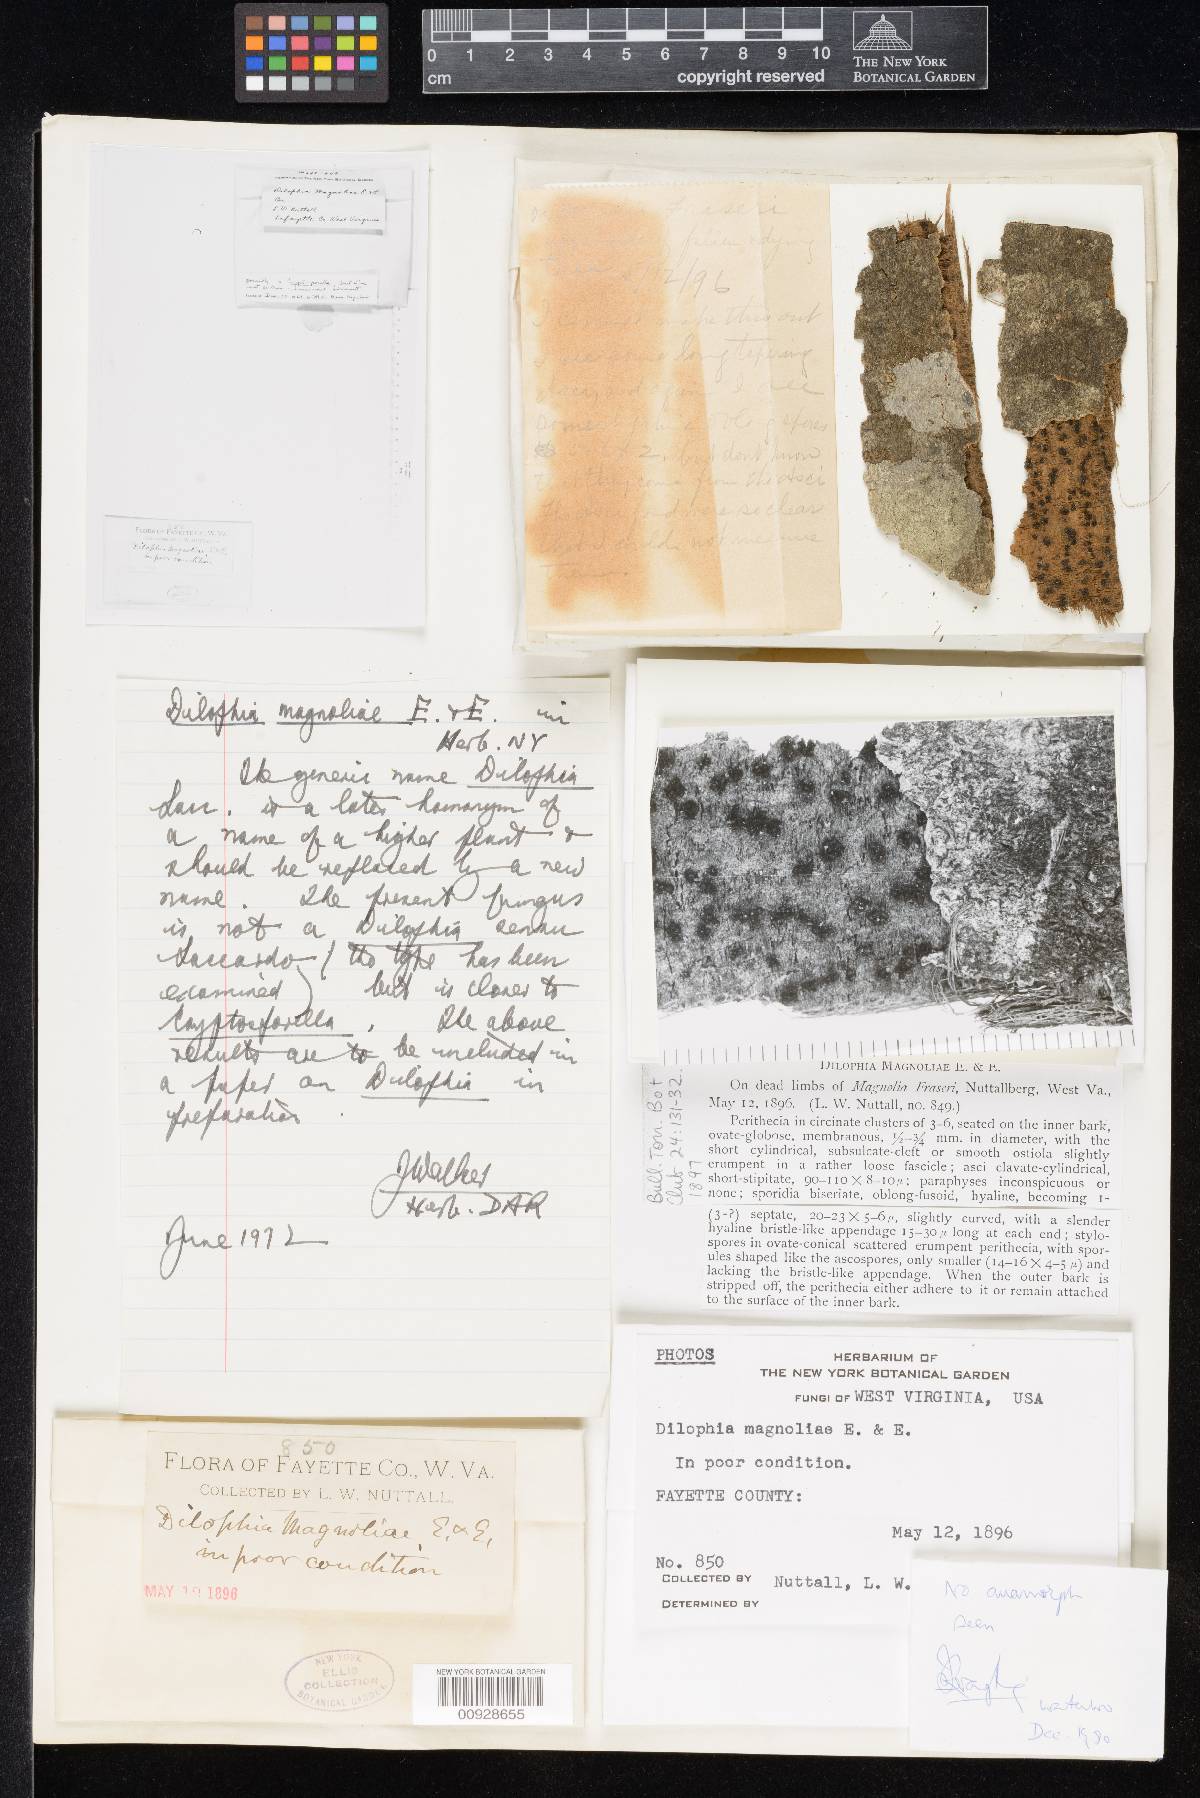 0 1 2 3 4 5 6 7 8 9 10
cm
copyright reserved
THE NEW YORK
BOTANICAL GARDEN
Dilophia Magnoliae E. & E.
L. W. Nuttall
Lafayette Co. West Virginia
FLORA OF FAYETTE CO., W. VA.
Dilophia Magnoliae E. & E,
in poor condition
Fraseri
5/12/96
I cannot make this out
I see some long tapering
I see
some
spores
but dont know
that they come from the asci
so clear
could not measure
them
Dilophia magnoliae E. & E. in
Herb. NY
The generic name Dilophia
Sacc. is a later homonym of
a name of a higher plant &
should be replaced by a new
name. The present fungus
is not a Dilophia sensu
Saccardo (the type has been
examined) but is closer to
Cryptosporella. The above
results are to be included in
a paper on Dilophia in
preparation.
J Walker
Herb. DAR
June 1972
Bull. Torr. Bot.
Club 24:131-32.
1897
DILOPHIA MAGNOLIAE E. & E.
On dead limbs of Magnolia Fraseri, Nuttallberg, West Va.,
May 12, 1896. (L. W. Nuttall, no. 849.)
Perithecia in circinate clusters of 3-6, seated on the inner bark,
ovate-globose, membranous, ½-¾ mm. in diameter, with the
short cylindrical, subsulcate-cleft or smooth ostiola slightly
erumpent in a rather loose fascicle; asci clavate-cylindrical,
short-stipitate, 90-110 × 8-10 µ; paraphyses inconspicuous or
none; sporidia biseriate, oblong-fusoid, hyaline, becoming 1-
(3-?) septate, 20-23 × 5-6 µ, slightly curved, with a slender
hyaline bristle-like appendage 15-30 µ long at each end; stylo-
spores in ovate-conical scattered erumpent perithecia, with spor-
ules shaped like the ascospores, only smaller (14-16 × 4-5 µ) and
lacking the bristle-like appendage. When the outer bark is
stripped off, the perithecia either adhere to it or remain attached
to the surface of the inner bark.
PHOTOS
HERBARIUM OF
THE NEW YORK BOTANICAL GARDEN
FUNGI OF WEST VIRGINIA, USA
Dilophia magnoliae E. & E.
In poor condition.
FAYETTE COUNTY:
May 12, 1896
No. 850
COLLECTED BY Nuttall, L. W.
DETERMINED BY
No anamorph
seen
Waterloo
Dec. 1980
850
FLORA OF FAYETTE CO., W. VA.
COLLECTED BY L. W. NUTTALL.
Dilophia Magnoliae E. & E,
in poor condition
MAY 12 1896
NEW YORK
ELLIS
COLLECTION
BOTANICAL GARDEN
NEW YORK BOTANICAL GARDEN
00928655